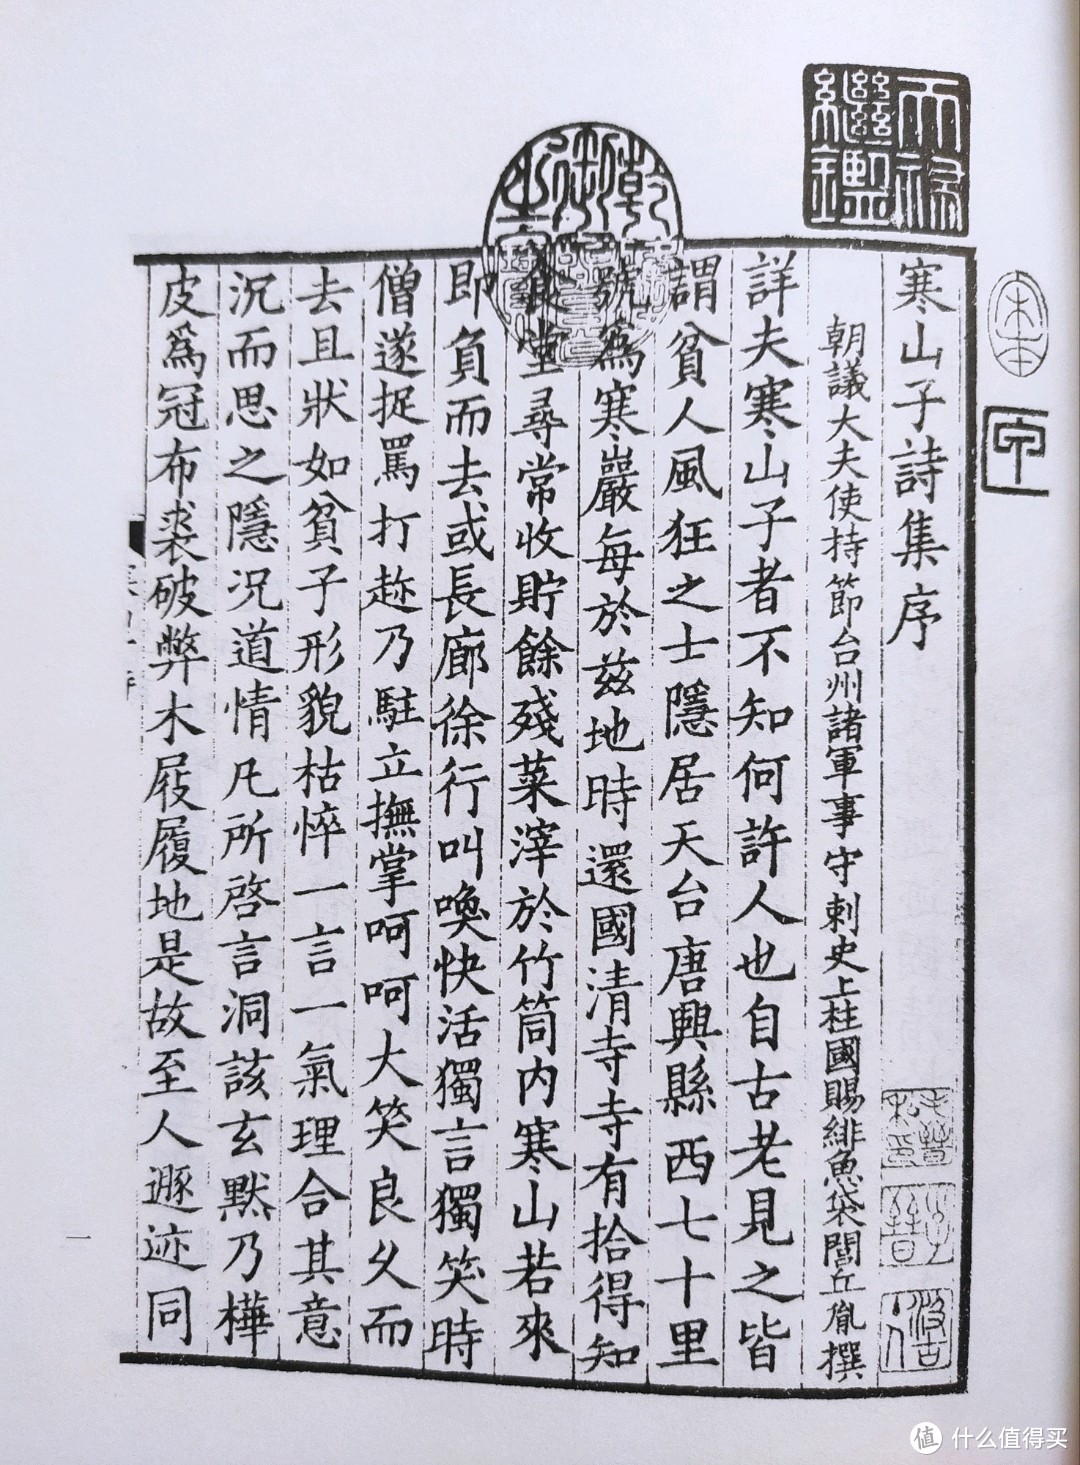 寒山子詩集序
朝議大夫使持節台州諸軍事守刺史上柱國賜緋魚袋閭丘胤撰
詳夫寒山子者不知何許人也自古老見之皆
謂貧人風狂之士隱居天台唐興縣西七十里
號爲寒巖每於兹地時還國清寺寺有拾得知
食堂尋常收貯餘殘菜滓於竹筒内寒山若來
即負而去或長廊徐行叫喚快活獨言獨笑時
僧遂捉罵打趂乃駐立撫掌呵呵大笑良久而
去且狀如貧子形貌枯悴一言一氣理合其意
沉而思之隱况道情凡所啓言洞該玄默乃樺
皮爲冠布裘破弊木屐履地是故至人遯迹同
天禄
繼鑑
乾
宋本
甲
一
值 什么值得买